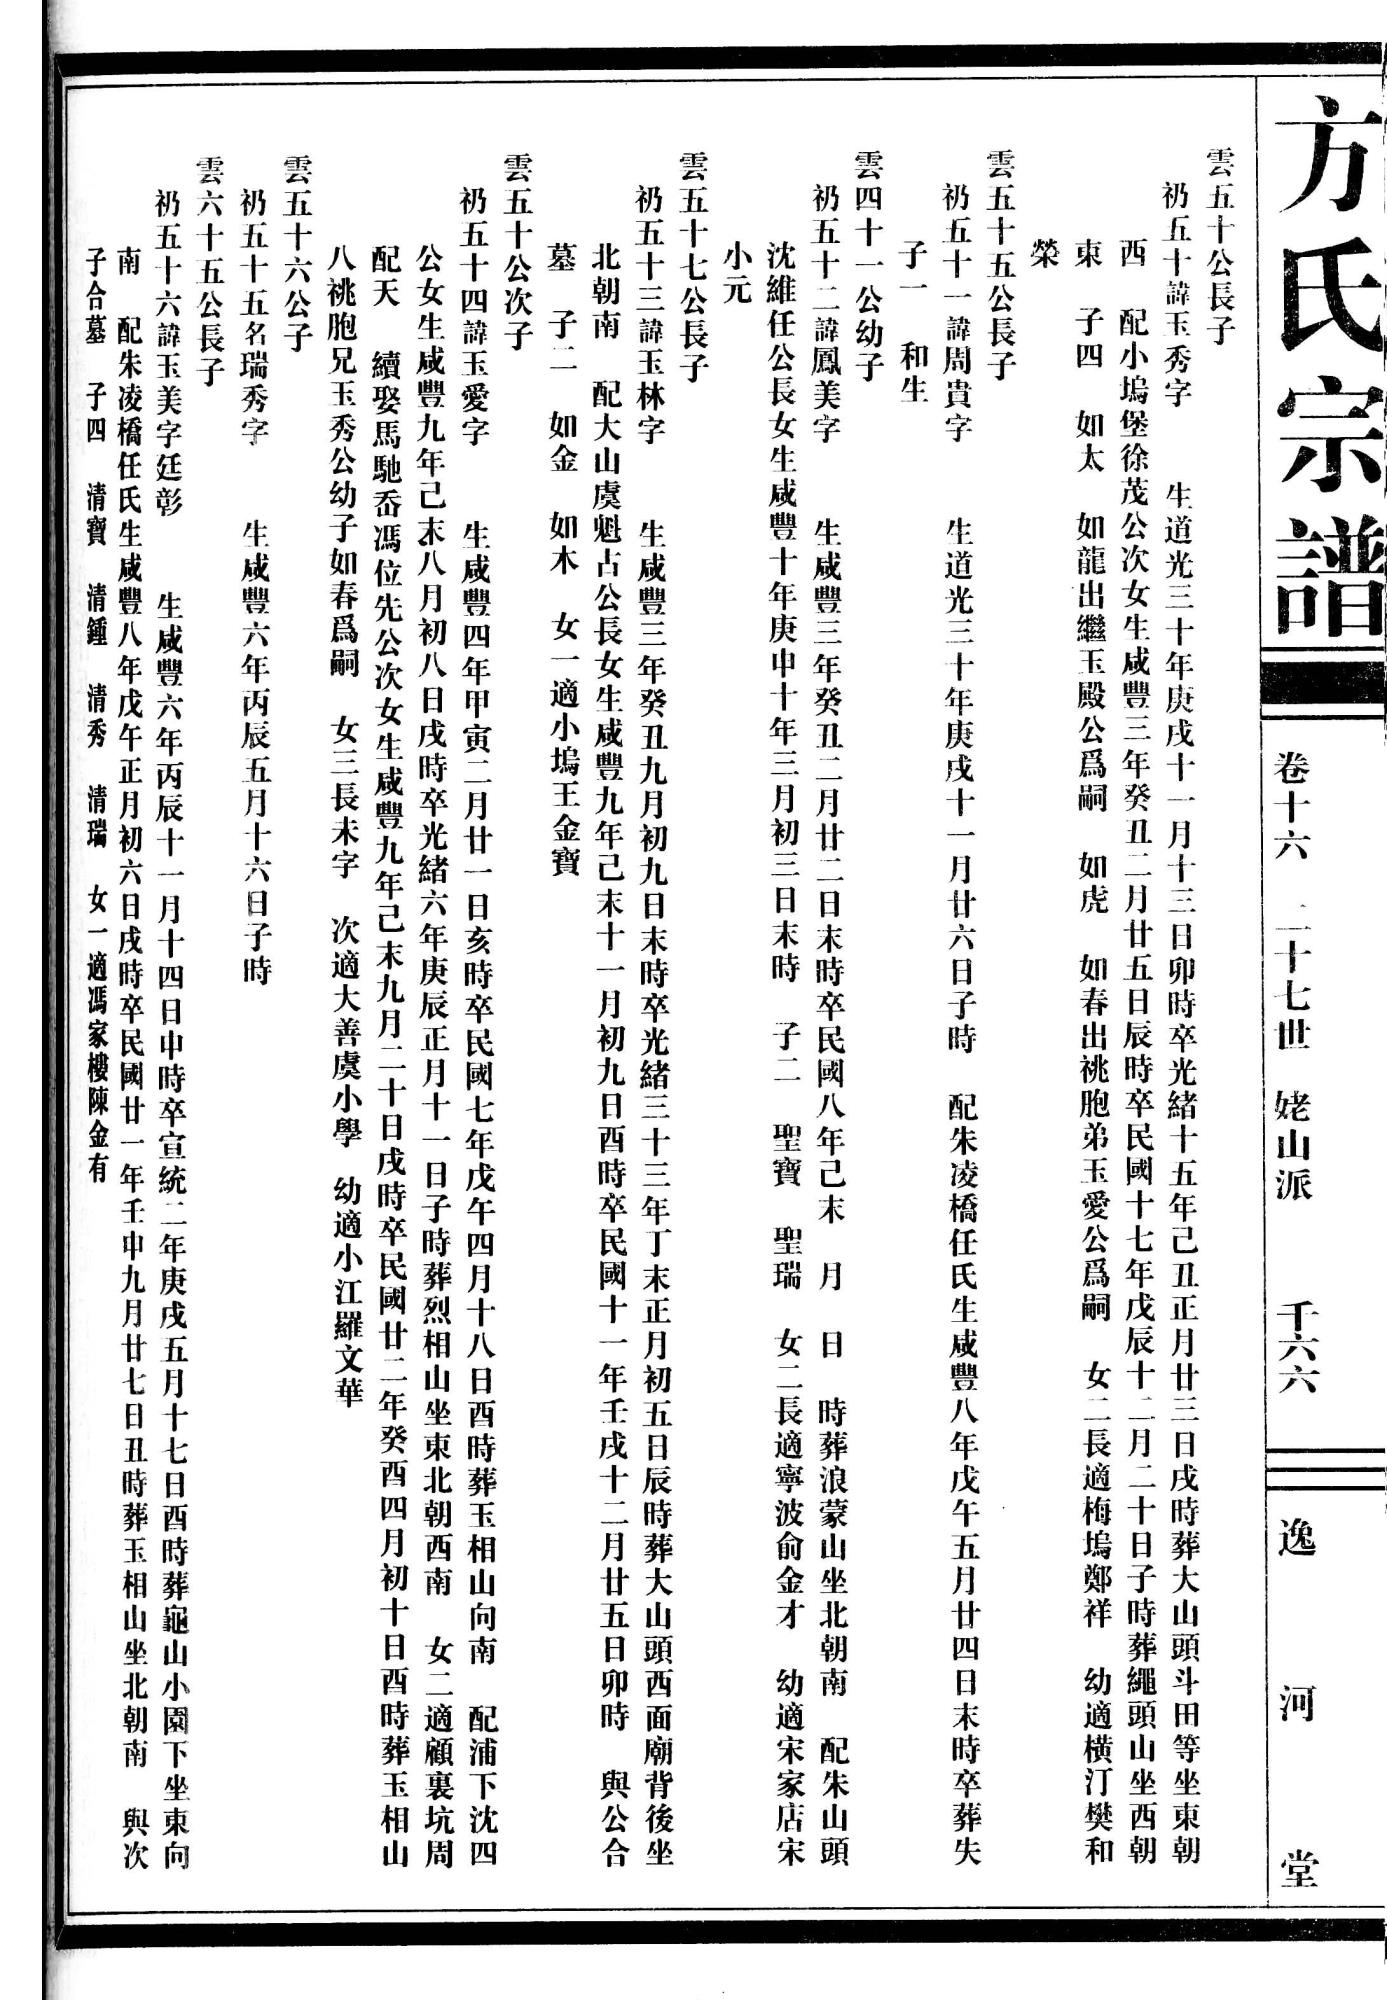 方氏宗譜
卷十六 二十七世 姥山派 千六六
逸河堂
雲五十公長子
礽五十諱玉秀字 生道光三十年庚戌十一月十三日卯時卒光緒十五年己丑正月廿三日戌時葬大山頭斗田等坐東朝
西 配小塢堡徐茂公次女生咸豐三年癸丑二月廿五日辰時卒民國十七年戊辰十二月二十日子時葬繩頭山坐西朝
東 子四 如太 如龍出繼玉殿公爲嗣 如虎 如春出祧胞弟玉愛公爲嗣 女二長適梅塢鄭祥 幼適橫汀樊和
榮
雲五十五公長子
礽五十一諱周貴字 生道光三十年庚戌十一月廿六日子時 配朱凌橋任氏生咸豐八年戊午五月廿四日末時卒葬失
子一 和生
雲四十一公幼子
礽五十二諱鳳美字 生咸豐三年癸丑二月廿二日末時卒民國八年己末 月 日 時葬浪蒙山坐北朝南 配朱山頭
沈維任公長女生咸豐十年庚申十年三月初三日末時 子二 聖寶 聖瑞 女二長適寧波俞金才 幼適宋家店宋
小元
雲五十七公長子
礽五十三諱玉林字 生咸豐三年癸丑九月初九日末時卒光緒三十三年丁末正月初五日辰時葬大山頭西面廟背後坐
北朝南 配大山虞魁占公長女生咸豐九年己末十一月初九日酉時卒民國十一年壬戌十二月廿五日卯時 與公合
墓 子二 如金 如木 女一適小塢王金寶
雲五十公次子
礽五十四諱玉愛字 生咸豐四年甲寅二月廿一日亥時卒民國七年戊午四月十八日酉時葬玉相山向南 配浦下沈四
公女生咸豐九年己末八月初八日戌時卒光緒六年庚辰正月十一日子時葬烈相山坐東北朝西南 女二適顧裏坑周
配天 續娶馬馳岙馮位先公次女生咸豐九年己末九月二十日戌時卒民國廿二年癸酉四月初十日酉時葬玉相山
八祧胞兄玉秀公幼子如春爲嗣 女三長未字 次適大善虞小學 幼適小江羅文華
雲五十六公子
礽五十五名瑞秀字 生咸豐六年丙辰五月十六日子時
雲六十五公長子
礽五十六諱玉美字廷彰 生咸豐六年丙辰十一月十四日申時卒宣統二年庚戌五月十七日酉時葬龜山小園下坐東向
南 配朱凌橋任氏生咸豐八年戊午正月初六日戌時卒民國廿一年壬申九月廿七日丑時葬玉相山坐北朝南 與次
子合墓 子四 清寶 清鍾 清秀 清瑞 女一適馮家樓陳金有